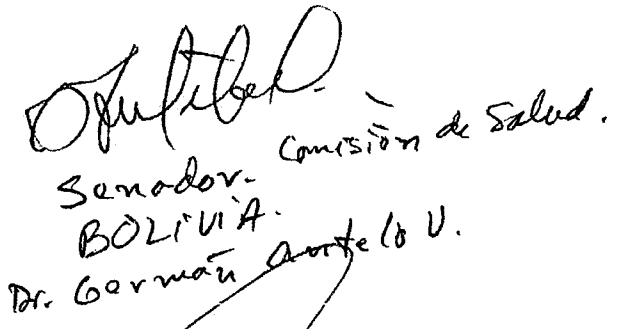 Senador. - Comisión de Salud.
BOLIVIA.
Dr. Germán Antelo V.